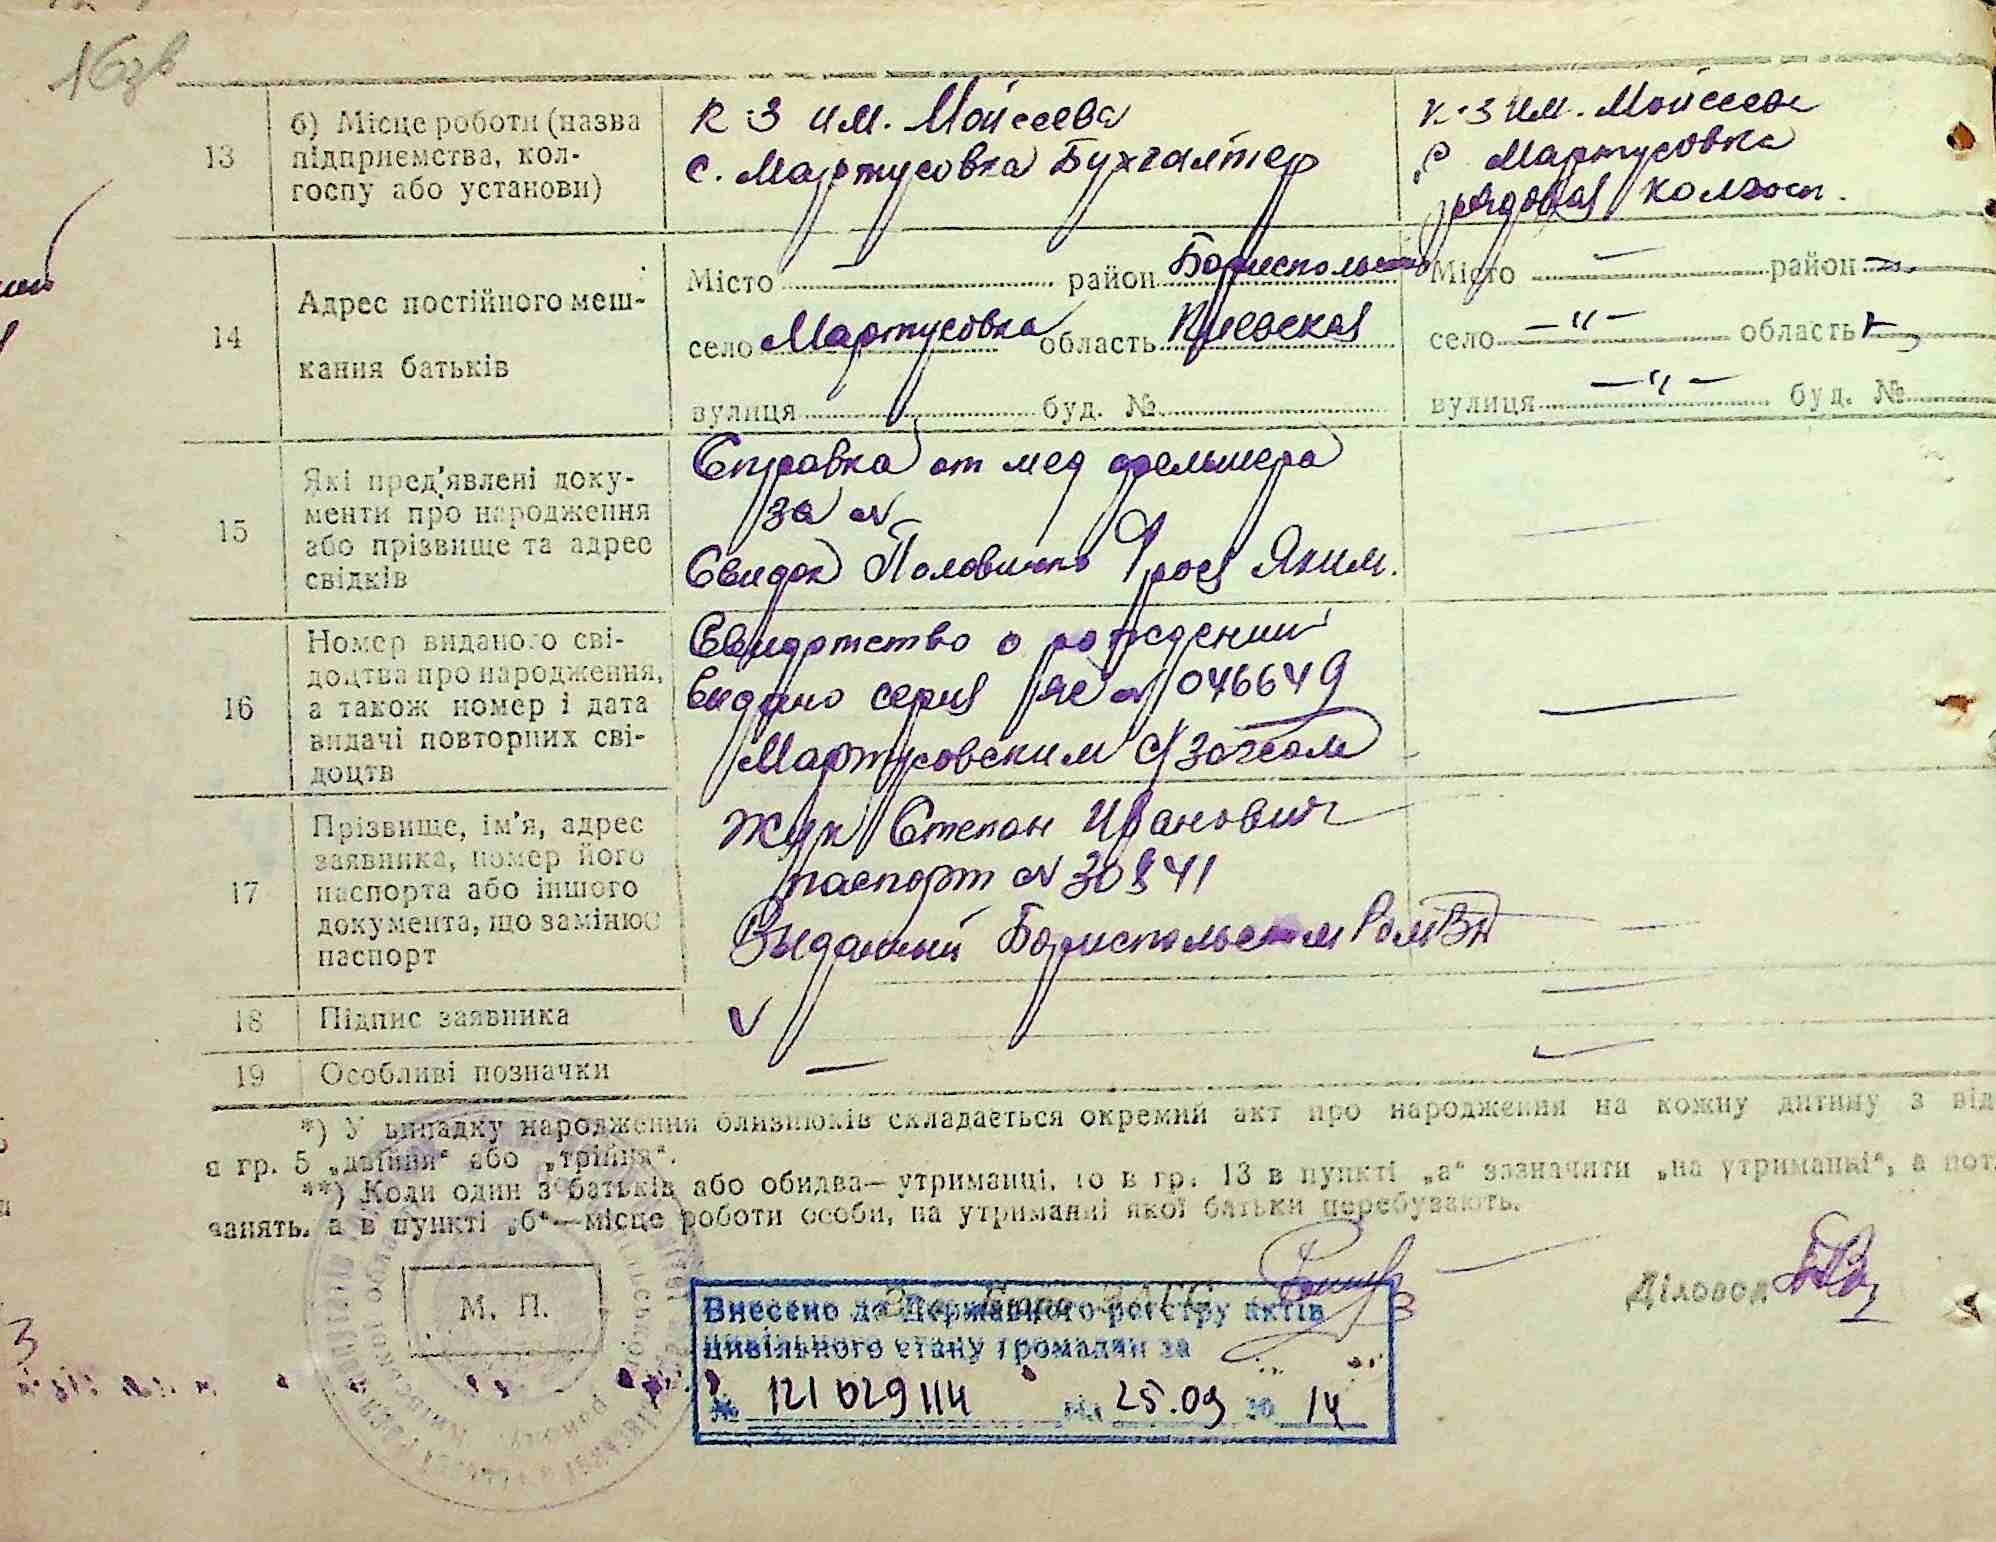 16зв
13
б) Місце роботи (назва
підприємства, кол-
госпу або установи)
К-З им. Мойсеева
с. Мартусовка Бухгалтер
К-З им. Мойсеева
с Мартусовка
рядовая колхоз.
14
Адрес постійного меш-
кання батьків
Місто — район Бориспольск
село Мартусовка область Киевская
вулиця буд. №
Місто — район
село —"— область
вулиця —"— буд. №
15
Які пред'явлені доку-
менти про народження
або прізвище та адрес
свідків
Справка от мед фельшера
за №
Свидок Половинко Фрося Яким.
16
Номер виданого сві-
доцтва про народження,
а також номер і дата
видачі повторних сві-
доцтв
Свидотство о рождении
видано серия ЯЕ № 046649
Мартусовским с/загсом
17
Прізвище, ім'я, адрес
заявника, номер його
паспорта або іншого
документа, що замінює
паспорт
Жук Степан Иванович
паспорт № 30841
Выданий Бориспольским
18
Підпис заявника
19
Особливі позначки
*) У випадку народження близнюків складається окремий акт про народження на кожну дитину з від
в гр. 5 „двійня" або „трійня".
**) Коли один з батьків або обидва— утриманці, то в гр. 13 в пункті „а" зазначити „на утриманні", а пот
занять, а в пункті „б"—місце роботи особи, на утриманні якої батьки перебувають.
М. П.
Зав. Бюро ЗАГС
Діловод
Внесено до Державного реєстру актів
цивільного стану громадян за
№ 121 029 114 від 25.09 20 14